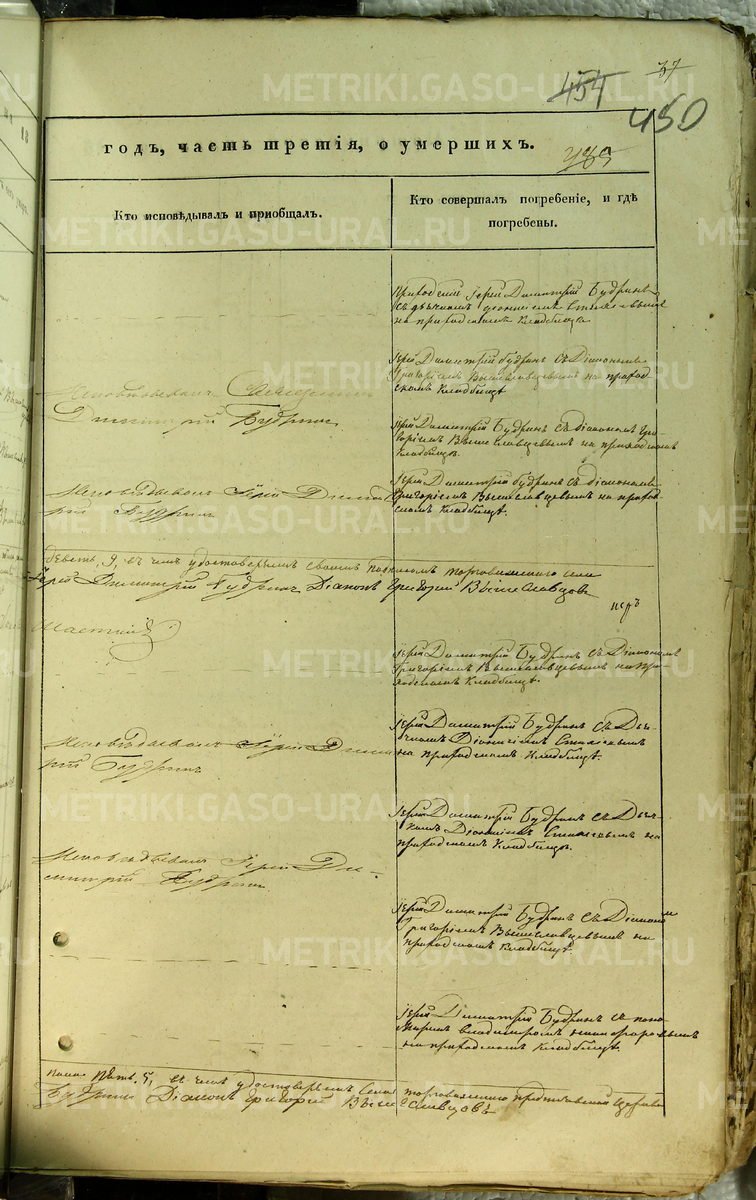 METRIKI.GASO-URAL.RU
37
454
450
годъ, часть третія, о умершихъ.
485
Кто исповѣдывалъ и приобщалъ.
Кто совершалъ погребеніе, и гдѣ
погребены.
Приходскій Іерей Димитрій Будринъ
на приходскомъ кладбищѣ
Іерей Димитрій Будринъ съ Діакономъ
Григоріемъ Вышеславцевымъ на приход-
скомъ кладбищѣ
Исповѣдывалъ Священникъ
Димитрій Будринъ
Іерей Димитрій Будринъ съ Діакономъ Гри-
горіемъ Вышеславцевымъ на приходскомъ
кладбищѣ.
Исповѣдывалъ Іерей Димит-
рій Будринъ
Іерей Димитрій Будринъ съ Діакономъ
Григоріемъ Вышеславцевымъ на приход-
скомъ кладбищѣ.
девять, 9, въ чемъ удостовѣряемъ своимъ подписомъ
Іерей Димитрій Будринъ Діаконъ Григорій Вышеславцовъ
Іерей Димитрій Будринъ съ Діакономъ
Григоріемъ Вышеславцевымъ на при-
ходскомъ кладбищѣ.
Исповѣдывалъ Іерей Димит-
рій Будринъ
Іерей Димитрій Будринъ съ Дья-
чкомъ Діонисіемъ
на приходскомъ кладбищѣ.
Исповѣдывалъ Іерей Ди-
митрій Будринъ
Іерей Димитрій Будринъ съ Дьяч-
комъ Діонисіемъ на
приходскомъ кладбищѣ.
Іерей Димитрій Будринъ съ Діакономъ
Григоріемъ Вышеславцевымъ на
приходскомъ кладбищѣ
Іерей Димитрій Будринъ съ поно-
маремъ Владиміромъ Никифоровымъ
на приходскомъ кладбищѣ.
пять, 5, въ чемъ удостовѣряемъ
Будринъ Діаконъ Григорій Вышеславцовъ